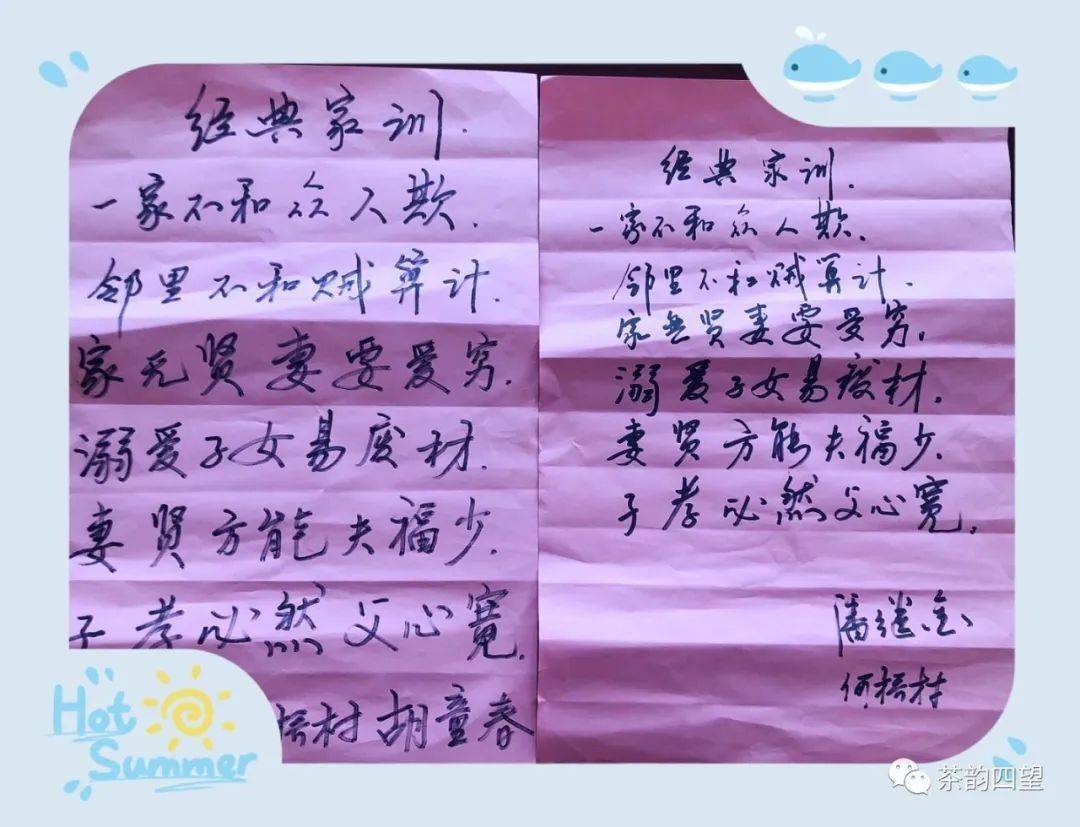 经典家训.
一家不和众人欺.
邻里不和贼算计.
家无贤妻要受穷.
溺爱子女易废材.
妻贤方能夫福少.
子孝必然父心宽.
梧村胡童春
经典家训.
一家不和众人欺.
邻里不和贼算计.
家无贤妻要受穷.
溺爱子女易废材.
妻贤方能夫福少.
子孝必然父心宽.
潘继金
何梧村
Hot
Summer
茶韵四望